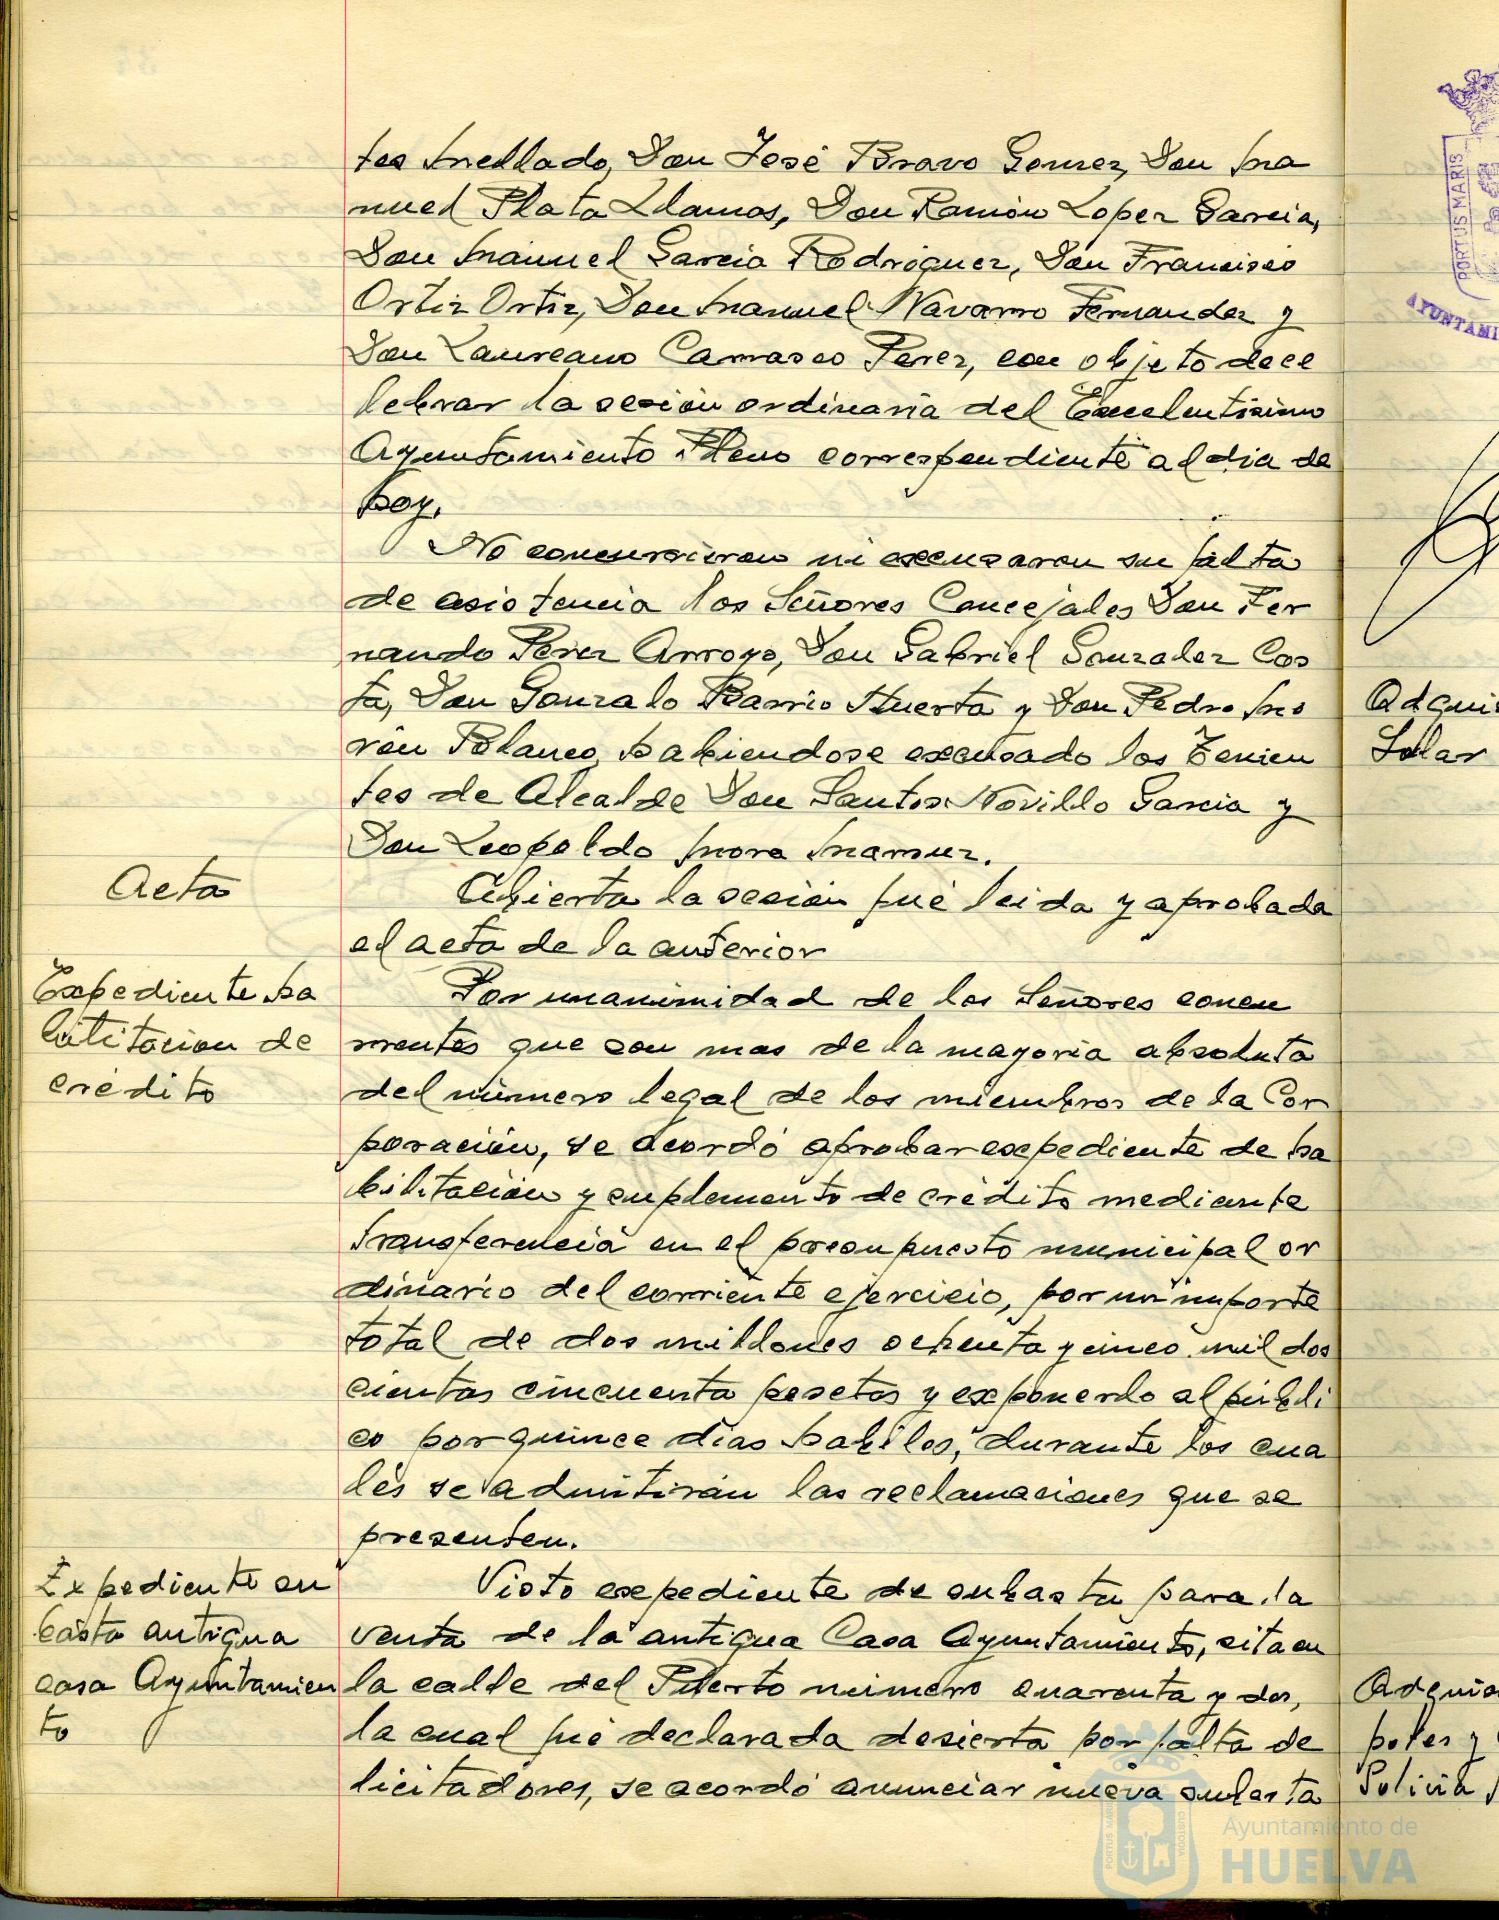 tes Mellado, Don José Bravo Gomez, Don Ma
nuel Plata Llamas, Don Ramón Lopez Garcia,
Don Manuel Garcia Rodriguez, Don Francisco
Ortiz Ortiz, Don Manuel Navarro Fernandez y
Don Laureano Carrasco Perez, con objeto de ce
lebrar la sesión ordinaria del Excelentísimo
Ayuntamiento Pleno correspondiente al dia de
hoy.
No concurrieron ni excusaron su falta
de asistencia los Señores Concejales Don Fer
nando Perez Arroyo, Don Gabriel Gonzalez Cos
ta, Don Gonzalo Barrio Huerta y Don Pedro Mo
rón Polanco, habiendose excusado los Tenien
tes de Alcalde Don Santos Novillo Garcia y
Don Leopoldo Mora
Acta
Abierta la sesión fué leida y aprobada
el acta de la anterior
Expediente ha
bilitacion de
crédito
Por unanimidad de los Señores concu
rrentes que son mas de la mayoria absoluta
del número legal de los miembros de la Cor
poración, se acordó aprobar expediente de ha
bilitación y suplemento de crédito mediante
transferencia en el presupuesto municipal or
dinario del corriente ejercicio, por un importe
total de dos millones ochenta y cinco mil dos
cientas cincuenta pesetas y exponerlo al públi
co por quince dias habiles, durante los cua
les se admitirán las reclamaciones que se
presenten.
Expediente su
basta antigua
casa Ayuntamien
to
Visto expediente de subasta para la
venta de la antigua Casa Ayuntamiento, sita en
la calle del Puerto número cuarenta y dos,
la cual fué declarada desierta por falta de
licitadores, se acordó anunciar nueva subasta
PORTUS MARIS
AYUNTAMI
Adquis
Solar
Adquis
potes y
Policia
Ayuntamiento de
HUELVA